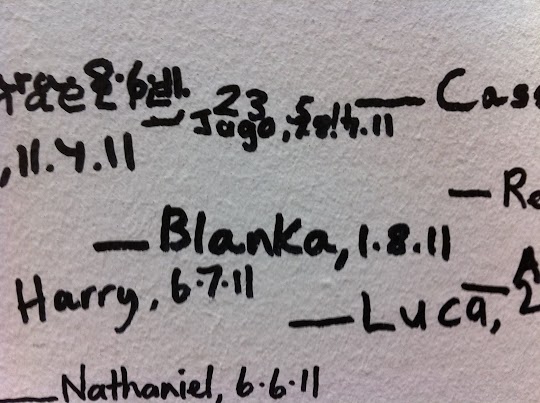 8.6.11.
23
Jago, 11
Cass
, 11.4.11
Re
Blanka, 1.8.11
Harry, 6.7.11
Luca,
Nathaniel, 6.6.11